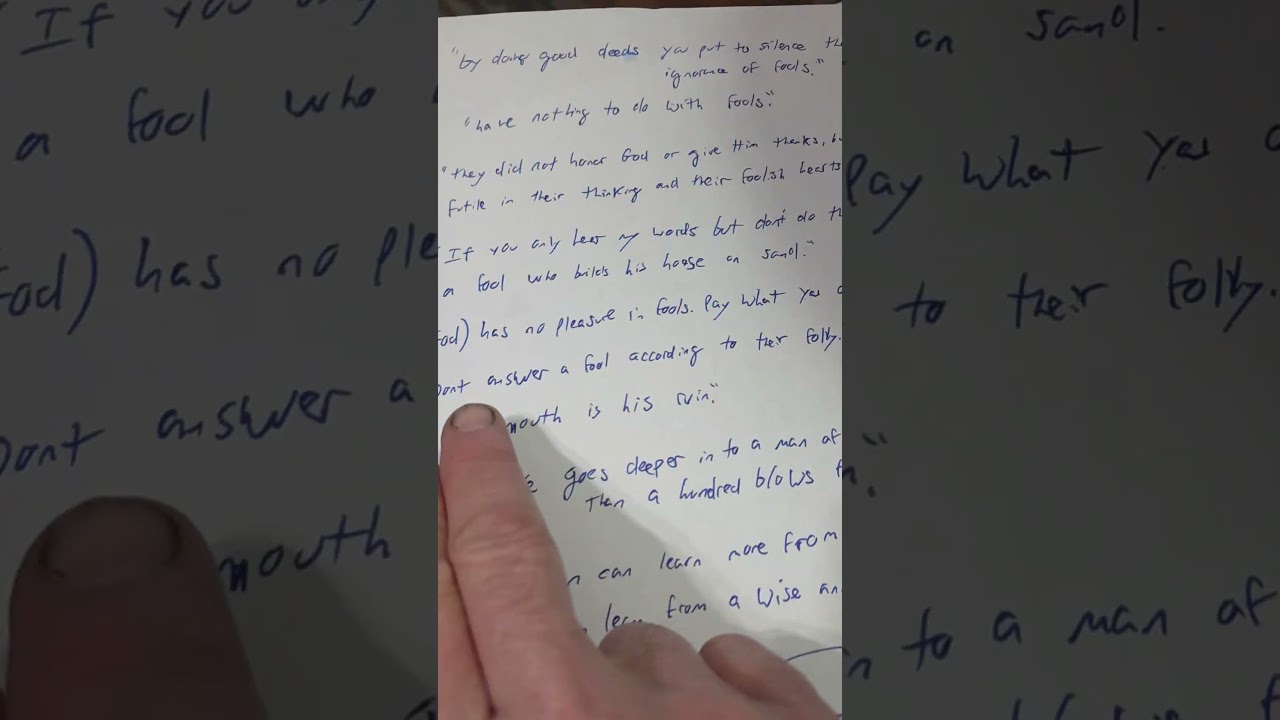 "by doing good deeds you put to silence the
ignorance of fools."
"have nothing to do with fools."
"they did not honor God or give Him thanks, bu
futile in their thinking and their foolish hearts
If you only hear my words but don't do th
a fool who builds his house on sand."
God) has no pleasure in fools. Pay what you o
Dont answer a fool according to their folly.
mouth is his ruin."
goes deeper in to a man of
Than a hundred blows
can learn more from
learn from a wise an